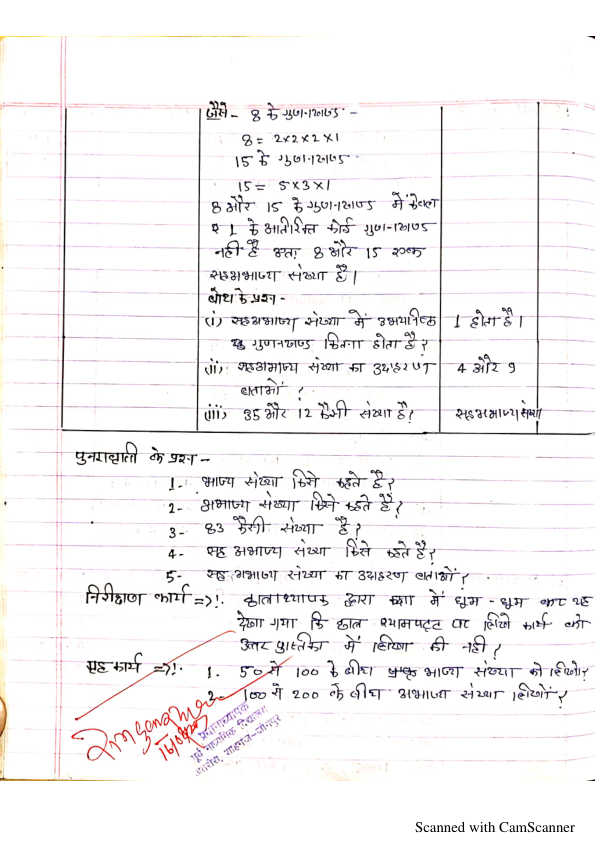 जैसे - 8 के गुणनखण्ड -
8 = 2x2x2x1
15 के गुणनखण्ड -
15 = 5x3x1
8 और 15 के गुणनखण्ड में केवल
1 के अतिरिक्त कोई गुणनखण्ड
नहीं है अतः 8 और 15 एक
सहअभाज्य संख्या है।
बोध के प्रश्न -
(i) सहअभाज्य संख्या में उभयनिष्ठ 1 होता है।
गुणनखण्ड कितना होता है?
(ii) सहअभाज्य संख्या का उदाहरण 4 और 9
बताओं ?
(iii) 35 और 12 कैसी संख्या है? सहअभाज्य संख्या
के प्रश्न -
1- भाज्य संख्या किसे कहते है?
2- अभाज्य संख्या किसे कहते है?
3- 83 कैसी संख्या है?
4- सह अभाज्य संख्या किसे कहते है?
5- सह अभाज्य संख्या का उदाहरण बताओं?
निरीक्षण कार्य =>!- द्वारा कक्षा में घूम-घूम कर यह
देखा गया कि छात्र श्यामपट्ट पर लिखे कार्य को
उत्तर पुस्तिका में लिखा की नहीं?
गृह कार्य =>!- 1. 50 से 100 के बीच भाज्य संख्या को लिखो?
2- 100 से 200 के बीच अभाज्य संख्या लिखों?
प्रधानाध्यापक
पूर्व माध्यमिक विद्यालय
शाहगंज-जौनपुर
Scanned with CamScanner